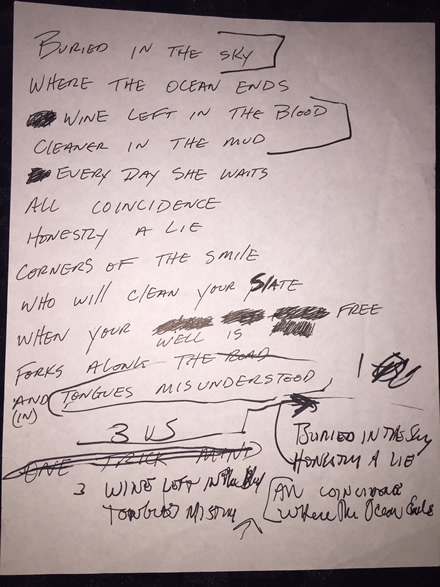 BURIED IN THE SKY
WHERE THE OCEAN ENDS
WINE LEFT IN THE BLOOD
CLEANER IN THE MUD
EVERY DAY SHE WAITS
ALL COINCIDENCE
HONESTLY A LIE
CORNERS OF THE SMILE
WHO WILL CLEAN YOUR SLATE
WHEN YOUR WELL IS FREE
FORKS ALONG THE ROAD
AND TONGUES MISUNDERSTOOD
(IN)
1
3 VS
ONE TRICK
BURIED IN THE SKY
HONESTLY A LIE
3 WINE LEFT IN THE
ALL COINCIDENCE
WHERE THE OCEAN ENDS